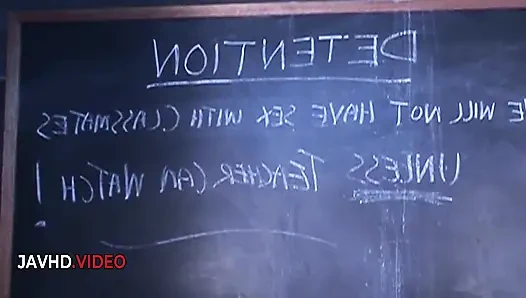 DETENTION
WILL NOT HAVE SEX WITH CLASSMATES
UNLESS TEACHER CAN WATCH!
JAVHD.VIDEO